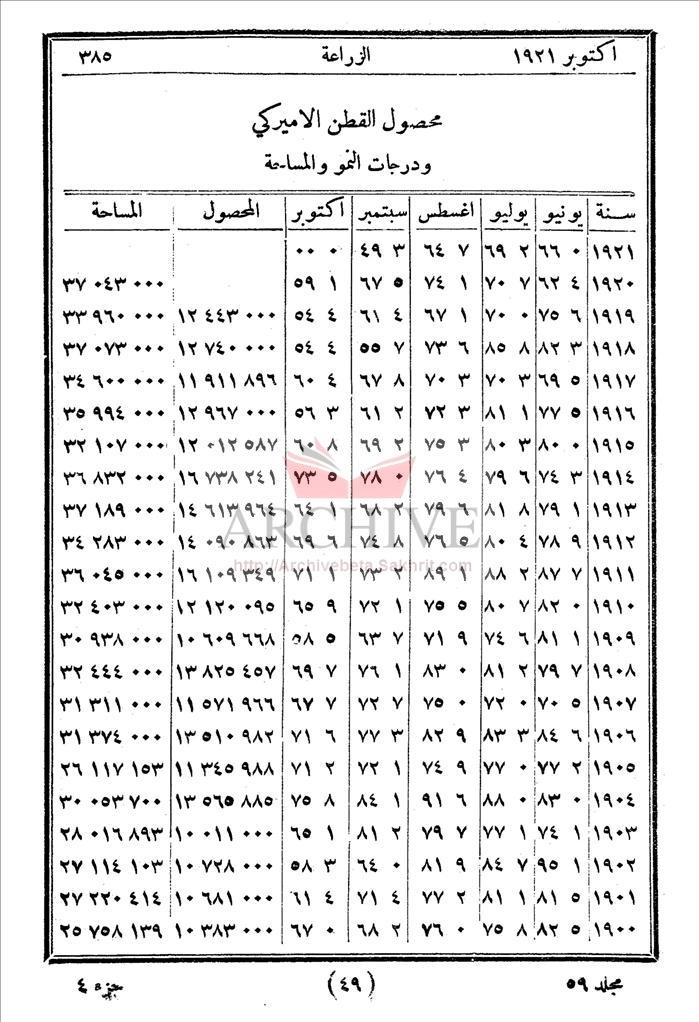 اكتوبر ١٩٢١ الزراعة ٣٨٥
محصول القطن الاميركي
ودرجات النمو والمساحة
سنة يونيو يوليو اغسطس سبتمبر اكتوبر المحصول المساحة
١٩٢١ ٦٦ ٠ ٦٩ ٢ ٦٤ ٧ ٤٩ ٣ ٠٠ ٠
١٩٢٠ ٦٢ ٤ ٧٠ ٧ ٧٤ ١ ٦٧ ٥ ٥٩ ١ ٣٧ ٠٤٣ ٠٠٠
١٩١٩ ٧٥ ٦ ٧٠ ٠ ٦٧ ١ ٦١ ٤ ٥٤ ٤ ١٢ ٤٤٣ ٠٠٠ ٣٣ ٩٦٠ ٠٠٠
١٩١٨ ٨٢ ٣ ٨٥ ٨ ٧٣ ٦ ٥٥ ٧ ٥٤ ٤ ١٢ ٧٤٠ ٠٠٠ ٣٧ ٠٧٣ ٠٠٠
١٩١٧ ٦٩ ٥ ٧٠ ٣ ٧٠ ٣ ٦٧ ٨ ٦٠ ٤ ١١ ٩١١ ٨٩٦ ٣٤ ٦٠٠ ٠٠٠
١٩١٦ ٧٧ ٥ ٨١ ١ ٧٢ ٣ ٦١ ٢ ٥٦ ٣ ١٢ ٩٦٧ ٠٠٠ ٣٥ ٩٩٤ ٠٠٠
١٩١٥ ٨٠ ٠ ٨٠ ٣ ٧٥ ٣ ٦٩ ٢ ٦٠ ٨ ١٢ ٠١٢ ٥٨٧ ٣٢ ١٠٧ ٠٠٠
١٩١٤ ٧٤ ٣ ٧٩ ٦ ٧٦ ٤ ٧٨ ٠ ٧٣ ٥ ١٦ ٧٣٨ ٢٤١ ٣٦ ٨٣٢ ٠٠٠
١٩١٣ ٧٩ ١ ٨١ ٨ ٧٩ ٦ ٦٨ ٢ ٦٤ ١ ١٤ ٦١٣ ٩٦٤ ٣٧ ١٨٩ ٠٠٠
١٩١٢ ٧٨ ٩ ٨٠ ٤ ٧٦ ٥ ٧٤ ٨ ٦٩ ٦ ١٤ ٠٩٠ ٨٦٣ ٣٤ ٢٨٣ ٠٠٠
١٩١١ ٨٧ ٧ ٨٨ ٢ ٨٩ ١ ٧٣ ٢ ٧١ ١ ١٦ ١٠٩ ٣٤٩ ٣٦ ٠٤٥ ٠٠٠
١٩١٠ ٨٢ ٠ ٨٠ ٧ ٧٥ ٥ ٧٢ ١ ٦٥ ٩ ١٢ ١٢٠ ٠٩٥ ٣٢ ٤٠٣ ٠٠٠
١٩٠٩ ٨١ ١ ٧٤ ٦ ٧١ ٩ ٦٣ ٧ ٥٨ ٥ ١٠ ٦٠٩ ٦٦٨ ٣٠ ٩٣٨ ٠٠٠
١٩٠٨ ٧٩ ٧ ٨١ ٢ ٨٣ ٠ ٧٦ ١ ٦٩ ٧ ١٣ ٨٢٥ ٤٥٧ ٣٢ ٤٤٤ ٠٠٠
١٩٠٧ ٧٠ ٥ ٧٢ ٠ ٧٥ ٠ ٧٢ ٧ ٦٧ ٧ ١١ ٥٧١ ٩٦٦ ٣١ ٣١١ ٠٠٠
١٩٠٦ ٨٤ ٦ ٨٣ ٣ ٨٢ ٩ ٧٧ ٣ ٧١ ٦ ١٣ ٥١٠ ٩٨٢ ٣١ ٣٧٤ ٠٠٠
١٩٠٥ ٧٧ ٢ ٧٧ ٠ ٧٤ ٩ ٧٢ ١ ٧١ ٢ ١١ ٣٤٥ ٩٨٨ ٢٦ ١١٧ ١٥٣
١٩٠٤ ٨٣ ٠ ٨٨ ٠ ٩١ ٦ ٨٤ ١ ٧٥ ٨ ١٣ ٥٦٥ ٨٨٥ ٣٠ ٠٥٣ ٧٠٠
١٩٠٣ ٧٤ ١ ٧٧ ١ ٧٩ ٧ ٨١ ٢ ٦٥ ١ ١٠ ٠١١ ٠٠٠ ٢٨ ٠١٦ ٨٩٣
١٩٠٢ ٩٥ ١ ٨٤ ٧ ٨١ ٩ ٦٤ ٠ ٥٨ ٣ ١٠ ٧٢٨ ٠٠٠ ٢٧ ١١٤ ١٠٣
١٩٠١ ٨١ ٥ ٨١ ١ ٧٧ ٢ ٧١ ٤ ٦١ ٤ ١٠ ٦٨١ ٠٠٠ ٢٧ ٢٢٠ ٤١٤
١٩٠٠ ٨٢ ٥ ٧٥ ٨ ٧٦ ٠ ٦٨ ٢ ٦٧ ٠ ١٠ ٣٨٣ ٠٠٠ ٢٥ ٧٥٨ ١٣٩
ARCHIVE
http://Archivebeta.Sakhrit.com
مجلد ٥٩ (٤٩) جزء ٤